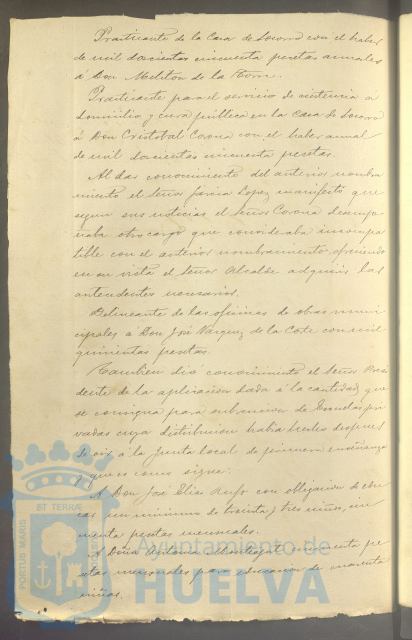 Practicante de la Casa de Socorro con el haber
de mil doscientas cincuenta pesetas anuales
á Don Meliton de la Torre.
Practicante para el servicio de asistencia á
domicilio y cura pública en la Casa de Socorro
á Don Cristobal Corona con el haber anual
de mil doscientas cincuenta pesetas.
Al dar conocimiento del anterior nombra
miento el Señor Garcia Lopez manifestó que
segun sus noticias el Señor Corona desempe
ñaba otro cargo que consideraba incompa
tible con el anterior nombramiento, ofreciendo
en su vista el Señor Alcalde adquirir los
antecedentes necesarios.
Delineante de las oficinas de obras muni
cipales á Don José Vazquez de la Corte con mil
quinientas pesetas.
Tambien dió conocimiento el Señor Presi
dente de la aplicacion dada á la cantidad que
se consigna para subvencion de Escuelas pri
vadas cuya distribucion habia hecho despues
de oir á la Junta local de primera enseñanza
y que es como sigue:
A Don José Elias con obligacion de edu
car un minimo de treinta y tres niños, cin
cuenta pesetas mensuales.
A Doña cincuenta pe
setas mensuales para educacion de cuarenta
niños.
PORTUS MARIS
ET TERRAE
Ayuntamiento de
HUELVA